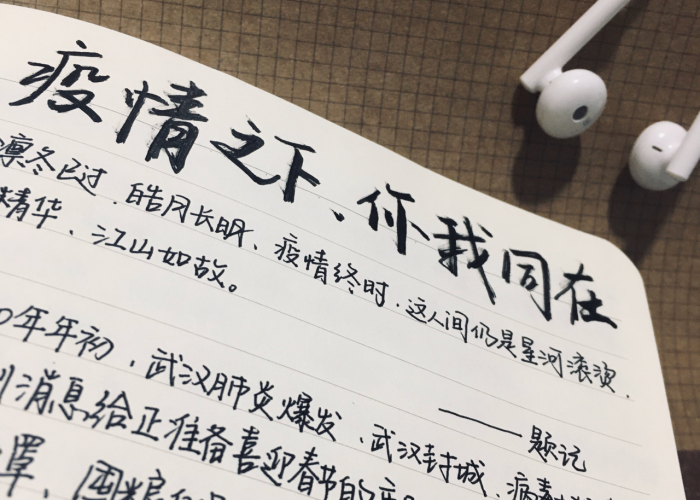 疫情之下、你我同在
凛冬已过，皓月长明、疫情终时，这人间仍是星河滚滚，
精华、江山如故。
——题记
0年年初，武汉肺炎爆发，武汉封城、病毒
消息给正准备喜迎春节的
罩、囤粮